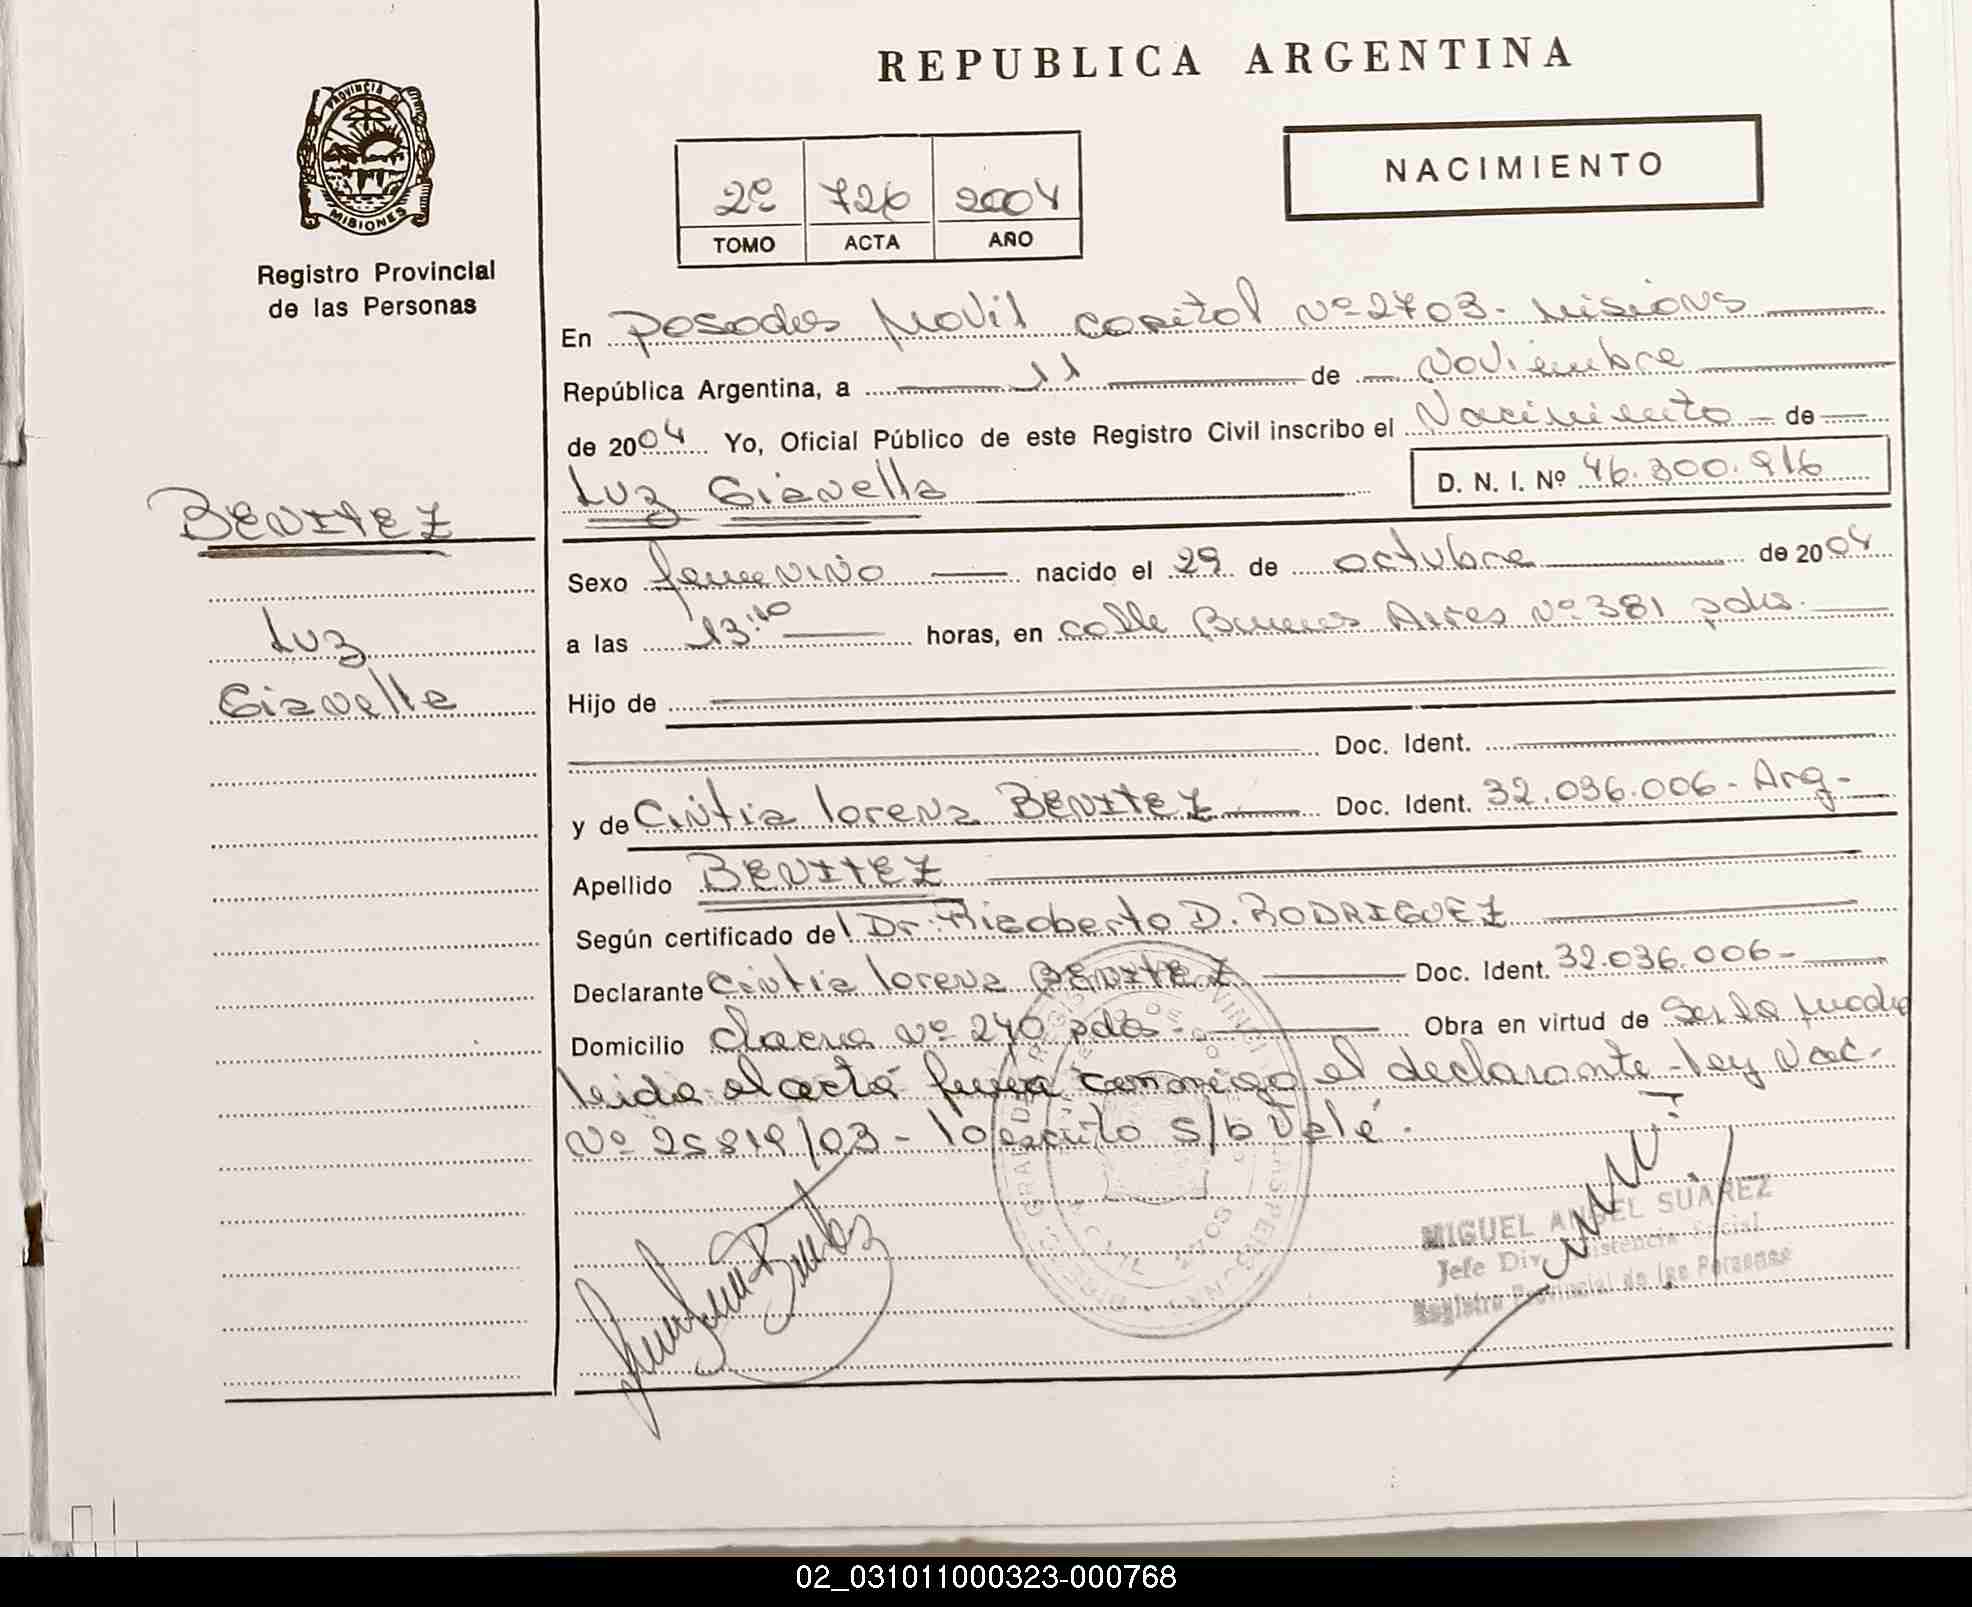 REPUBLICA ARGENTINA
PROVINCIA DE
MISIONES
Registro Provincial
de las Personas
NACIMIENTO
2º 726 2004
TOMO ACTA AÑO
En Posadas Movil Capital Nº 2703 - Misiones
República Argentina, a 11 de Noviembre
de 2004 Yo, Oficial Público de este Registro Civil inscribo el Nacimiento de
Luz Gianella
D. N. I. Nº 46.300.916
BENITEZ
Luz
Gianella
Sexo femenino nacido el 29 de octubre de 2004
a las 13:10 horas, en calle Buenos Aires Nº 381 pdas.
Hijo de
Doc. Ident.
y de Cintia lorena BENITEZ Doc. Ident. 32.036.006 - Arg -
Apellido BENITEZ
Según certificado del Dr. Rigoberto D. RODRIGUEZ
Declarante Cintia lorena BENITEZ Doc. Ident. 32.036.006 -
Domicilio Chacra Nº 240 pdas - Obra en virtud de
leida el acta firma conmigo el declarante - ley Nac.
Nº 25819/03 - lo escrito s/b Vale.
MIGUEL ANGEL SUAREZ
Jefe Div. Asistencia Social
Registro Provincial de las Personas
02_031011000323-000768